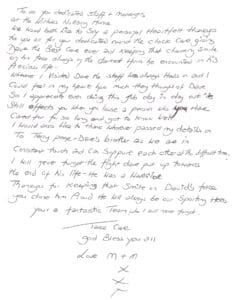 To all you dedicated staff & managers
at the Nursing Home
We would both like to say a personal Heartfelt thankyou
to you all for your dedicated round the clock care giving
Dave the Best Care ever and keeping that cheeky smile
on his face always in the darkest times he encountered in his
Precious life.
Whenever I visited Dave the staff always there in and I
Could feel in my heart how much they thought of Dave
So I appreciate even doing this job day in day out
Still effects you when you lose a person who you have
Cared for for so long and got to know well
I would also like to thank whoever passed my details on
To Terry Dave's brother as we are in
Constant touch and Can Support each other at this difficult time.
I will never forget the fight Dave put up towards
the end of his life - He was a
Thankyou for keeping that Smile on David's face
you done him Proud He will always be our Sporting Hero
your a fantastic Team who I will never forget.
Take Care
God Bless you all
Love M + M
x
x
x